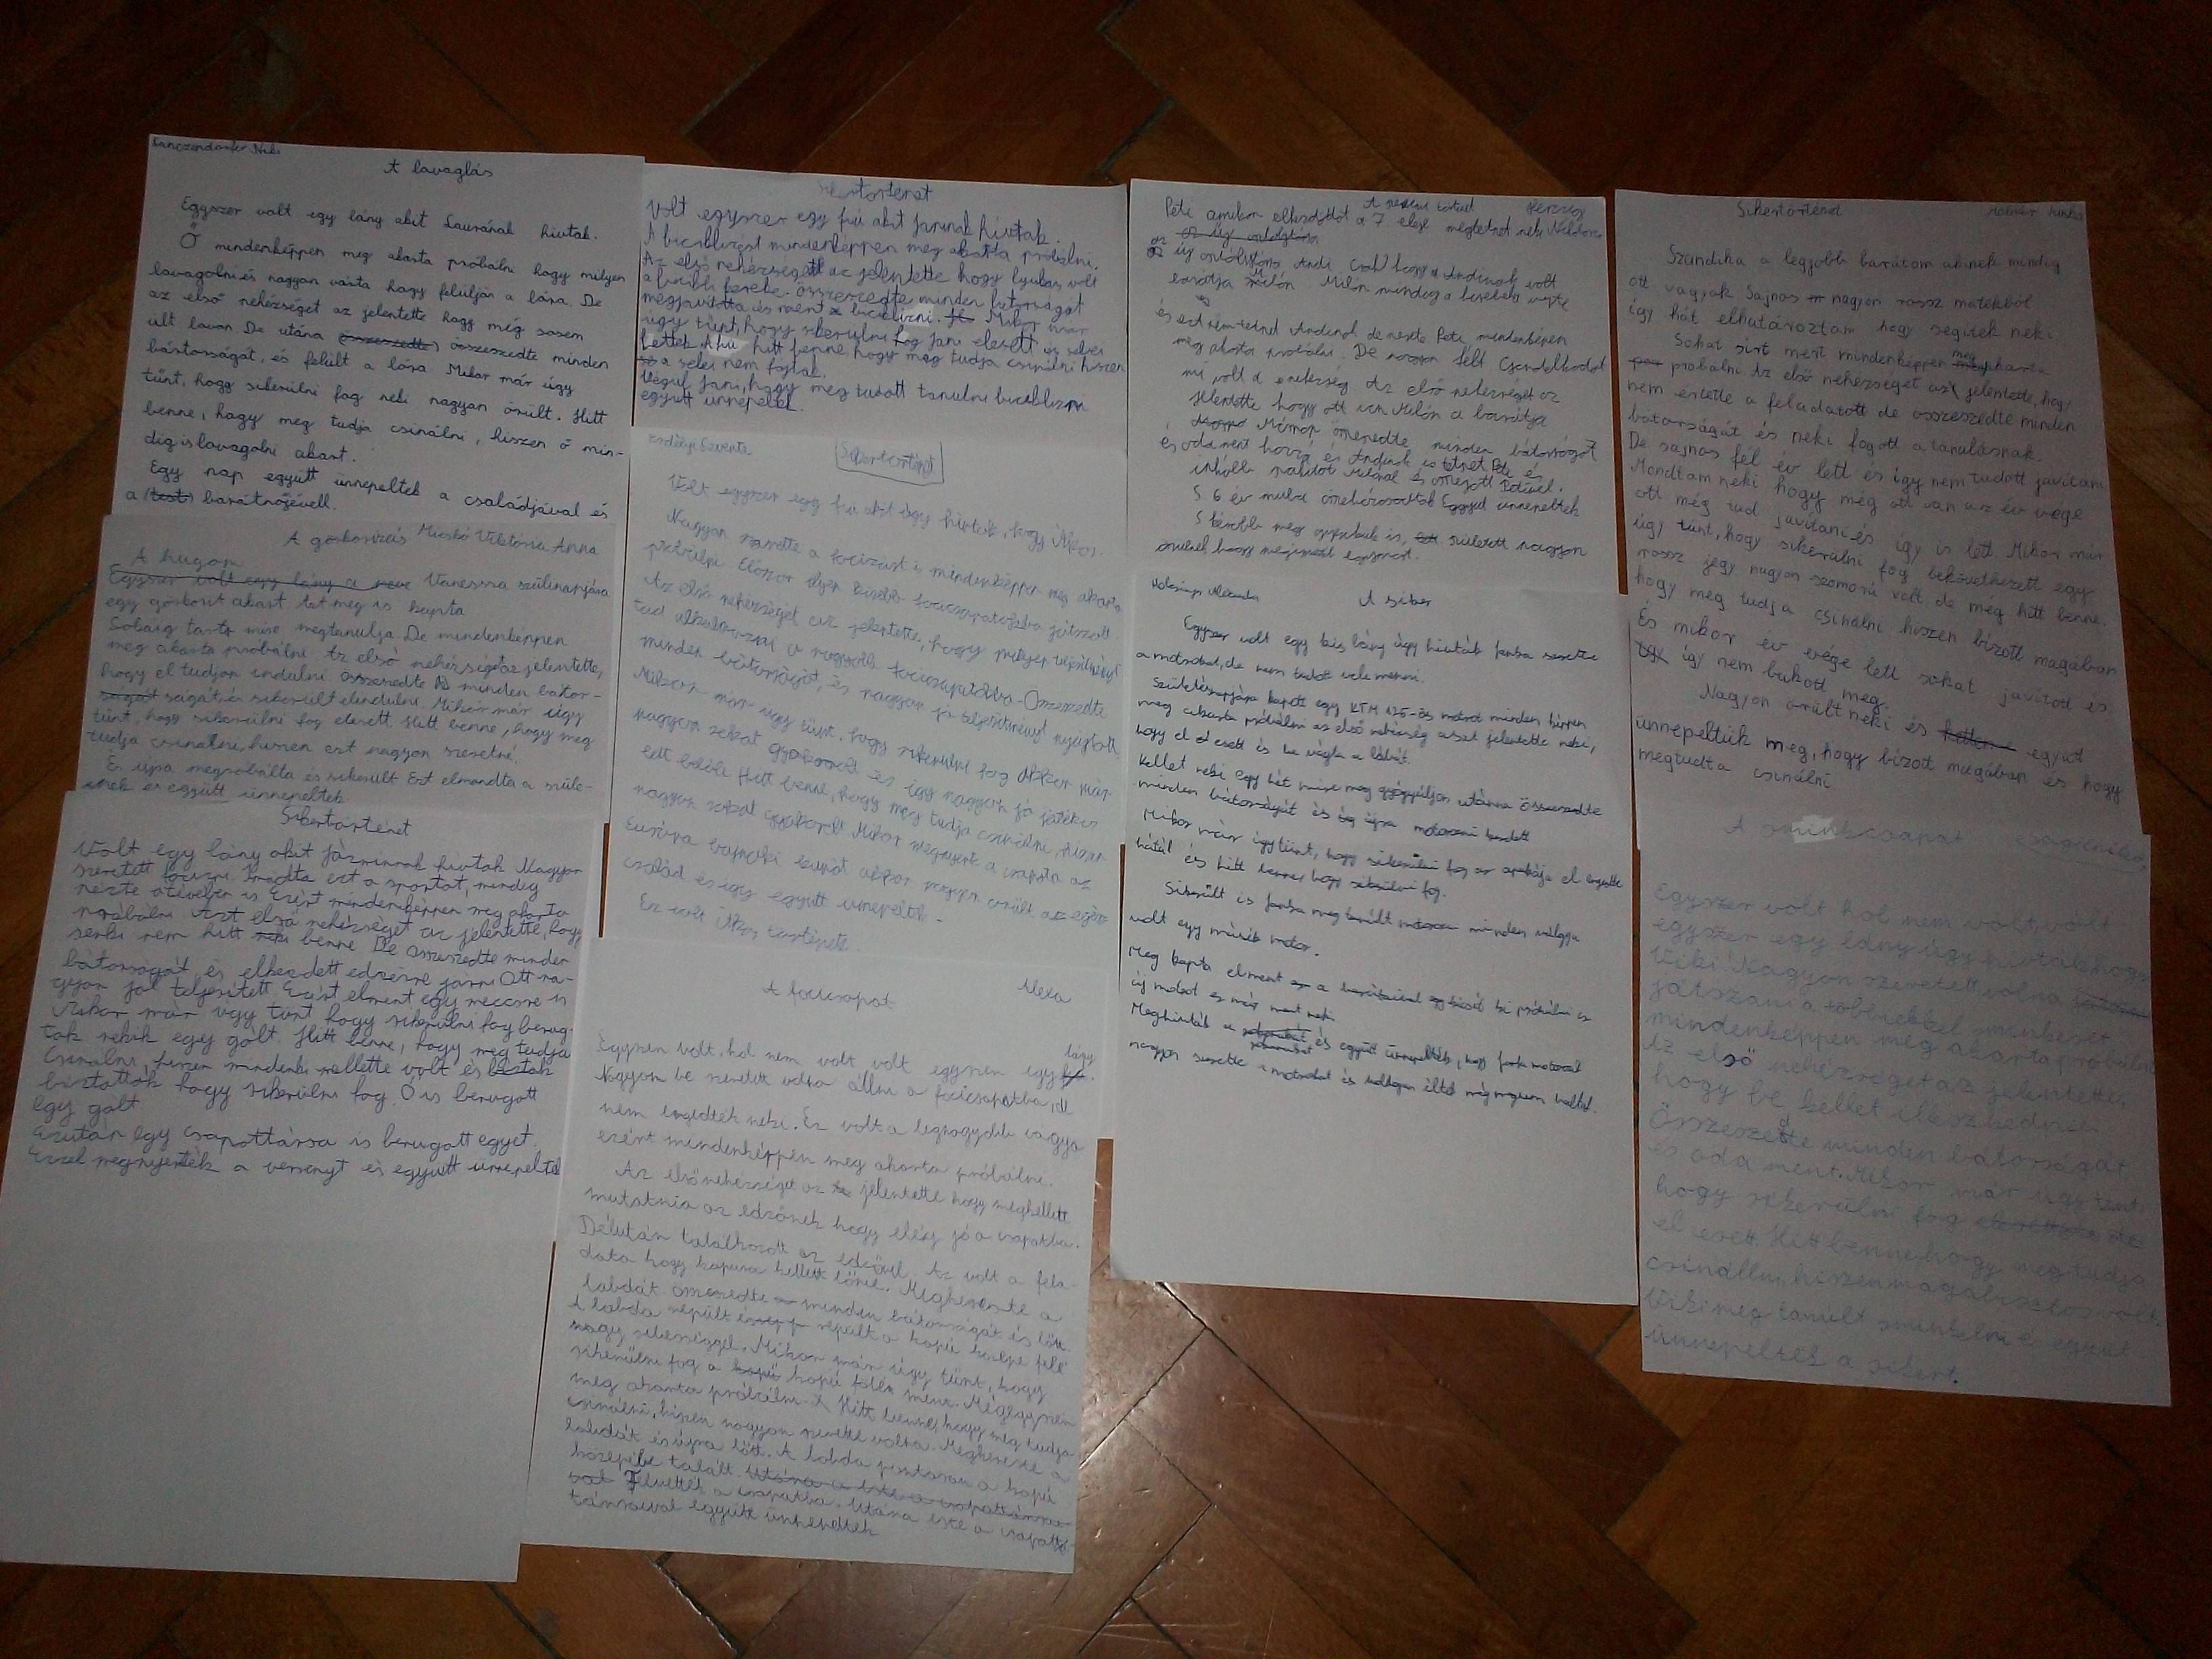 A lavaglás
Egyszer volt egy lány akit Laurának hívtak.
Ő mindenképpen meg akarta próbálni hogy milyen
lavagolni és nagyon várta hogy felüljön a lóra. De
az első nehézséget az jelentette hogy még sosem
ült lovon. De utána (összeszedte) összeszedte minden
bástorságát, és felült a lóra. Mikor már úgy
tűnt, hogy sikerülni fog neki nagyon örült. Hitt
benne, hogy meg tudja csinálni, hiszen ő min-
dig is lavagolni akart.
Egy nap együtt ünnepeltek a családjával és
a (test) barátnőjével.
A görkorizás Micskó Viktória Anna
A hugom
Egyszer volt egy lány a neve Vanessza szülinapjára
egy görkorit akart hát meg is kapta
Sokáig tartt mire megtanulja De mindenképpen
meg akarta próbálni Az első nehézséget az jelentette,
hogy el tudjon indulni összedte minden bátor-
ságát és sikerült elindulni. Mikor már úgy
tűnt, hogy sikerülni fog elesett Hitt benne, hogy meg
tudja csinálni, hiszen ezt nagyon szeretné.
És újra megpróbálta és sikerült Ezt elmondta a szüle-
inek és együtt ünnepeltek
Sikertörténet
Volt egy lány akit Jázminnak hívtak Nagyon
szeretett focizni. Imádta ezt a sportot, mindig
nézte a tévében is Ezért mindenképpen meg akarta
próbálni Azt első nehézséget az jelentette, hogy
senki nem hitt neki benne De összeszedte minden
bátorságát és elkezdett edzésre járni Ott na-
gyon jól teljesített Ezért elment egy meccsre is
Mikor már úgy tűnt hogy sikerülni fog berúg-
tak nekik egy gólt. Hitt benne, hogy meg tudja
csinálni, hiszen mindenki mellette volt és
bíztatták hogy sikerülni fog. Ő is berúgott
egy gólt
Ezután egy csapattársa is berúgott egyet.
Ezzel megnyerték a versenyt és együtt ünnepeltek
Sikertörténet
Volt egyszer egy fiú akit Janinak hívtak.
A biciklizést mindenképpen meg akarta próbálni.
Az első nehézséget az jelentette hogy lyukas volt
a bicikli kereke. Összeszedte minden bátorságát
megjavította és ment biciklizni. Mikor már
úgy tűnt, hogy sikerülni fog Jani elesett és sebei
lettek. A fiú hitt benne, hogy meg tudja csinálni hiszen
a sebei nem fájtak.
Végül Jani, hogy meg tudott tanulni biciklizni
együtt ünnepeltek.
Erdélyi Levente
Sikertörténet
Volt egyszer egy fiú akit úgy hívtak, hogy Ákos.
Nagyon szerette a focizást és mindenképpen meg akarta
próbálni. Először ilyen kisebb focicsapatokba játszott.
Az első nehézséget az jelentette, hogy milyen teljesítményt
tud alkalmazni a nagyobb focicsapatokba. Összeszedte
minden bátorságát, és nagyon jó teljesítményt nyújtott.
Mikor már úgy tűnt, hogy sikerülni fog akkor már
nagyon sokat gyakorolt és így nagyon jó játékos
lett belőle Hitt benne, hogy meg tudja csinálni, hiszen
nagyon sokat gyakorolt Mikor megnyerte a csapata az
Európa bajnoki kupát akkor nagyon örült az egész
család és így együtt ünnepeltek.
Ez volt Ákos története
A focicsapat
Alexa
Egyszer volt, hol nem volt volt egyszer egy lány.
Nagyon be szeretett volna állni a focicsapatba, de
nem engedték neki. Ez volt a legnagyobb vágya
ezért mindenképpen meg akarta próbálni.
Az első nehézséget az jelentette hogy meg kellett
mutatnia az edzőnek hogy elég jó a csapatba.
Délután találkozott az edzővel. Az volt a fela-
data hogy kapura kellett lőnie. Megkereste a
labdát összeszedte minden bátorságát és lőtt.
A labda repült repült a kapú közepe felé
nagy sebességgel. Mikor már úgy tűnt, hogy
sikerülni fog a kapú kapú fölé ment. Mégegyszer
meg akarta próbálni. Hitt benne, hogy meg tudja
csinálni, hiszen nagyon szerette volna. Megkereste a
labdát és újra lőtt. A labda pontosan a kapú
közepébe talált. Utána a este a csapattársa-
val Felvették a csapatba. Utána este a csapat-
társaival együtt ünnepeltek
Peti amikor elkezdődött a 7 eleje megtetszett neki
új osztálytárs Andi Csak hogy Andinak volt
barátja Milán Milán mindig a közelében volt
és ezt nem tetszett Andinak de nesze Peti mindenképen
meg akarta próbálni. De nagyon félt Gondolkodott
mi volt a nehézség Az első nehézséget az
jelentette hogy ott van Milán a barátja
Másnap összeszedte minden bátorságát
és odament hozzá és Andinak is tetszett Peti és
inkább szakított Milánnal és összejött Petivel.
S 6 év múlva összeházasodtak Eggyüt ünnepeltek
S később meg gyerekük is született nagyon
örültek hogy megismerték egymást.
A siker
Egyszer volt egy kis lány úgy hívták Janka szerette
a motrokat, de nem tudott vele menni.
Születésnapjára kapott egy KTM 125-ös motrot minden képpen
meg akarta próbálni az első nehézség aszt jelentette neki,
hogy el el esett és be vágta a lábát.
Kellet neki egy hét mire meg gyógyúljon utánna összeszedte
minden bátorságát és újra motorozni kezdett
Mikor már úgy tűnt, hogy sikerülni fog az apukája el engedte
hátúl és hitt benne hogy sikerülni fog.
Sikerült is Janka meg tanúlt motorozni minden vágya
volt egy másik motor.
Meg kapta elment a barátaival ki próbálni az
új motort és már ment neki
Meghívták a és együtt ünnepelték, hogy Janka motorral
nagyon szerette a motrokat és boldogan éltek még nagyon
Sikertörténet
Szandika a legjobb barátom akinek mindig
ott vagyok Sajnos nagyon rossz matekból
így hát elhatároztam hogy segítek neki
Sokat sírt mert mindenképpen meg akarta
próbálni Az első nehézséget az jelentette, hogy
nem értette a feladatott de összeszedte minden
bátorságát és neki fogott a tanulásnak.
De sajnos fél év lett és így nem tudott javítani
Mondtam neki hogy még ott van az év vége
ott még tud javítani és így is lett. Mikor már
úgy tűnt, hogy sikerülni fog bekövetkezett egy
rossz jegy nagyon szomorú volt de még hitt benne,
hogy meg tudja csinálni hiszen bízott magában
És mikor év vége lett sokat javított és
így nem bukott meg.
Nagyon örült neki és együtt
ünnepeltük meg, hogy bízott magában és hogy
megtudta csinálni
Egyszer volt hol nem volt, volt
egyszer egy lány úgy hívták hogy
Viki Nagyon szeretett volna
játszani a többiekkel
mindenképpen meg akarta próbálni
Az első nehézséget az jelentette,
hogy be kellet illeszkednie.
Összeszette minden bátorságát
és oda ment. Mikor már úgy tűnt,
hogy sikerülni fog
el esett. Hitt benne, hogy meg tudja
csinálni, hiszen magabisztos volt.
Viki meg tanult és együtt
ünnepeltek a sikert.